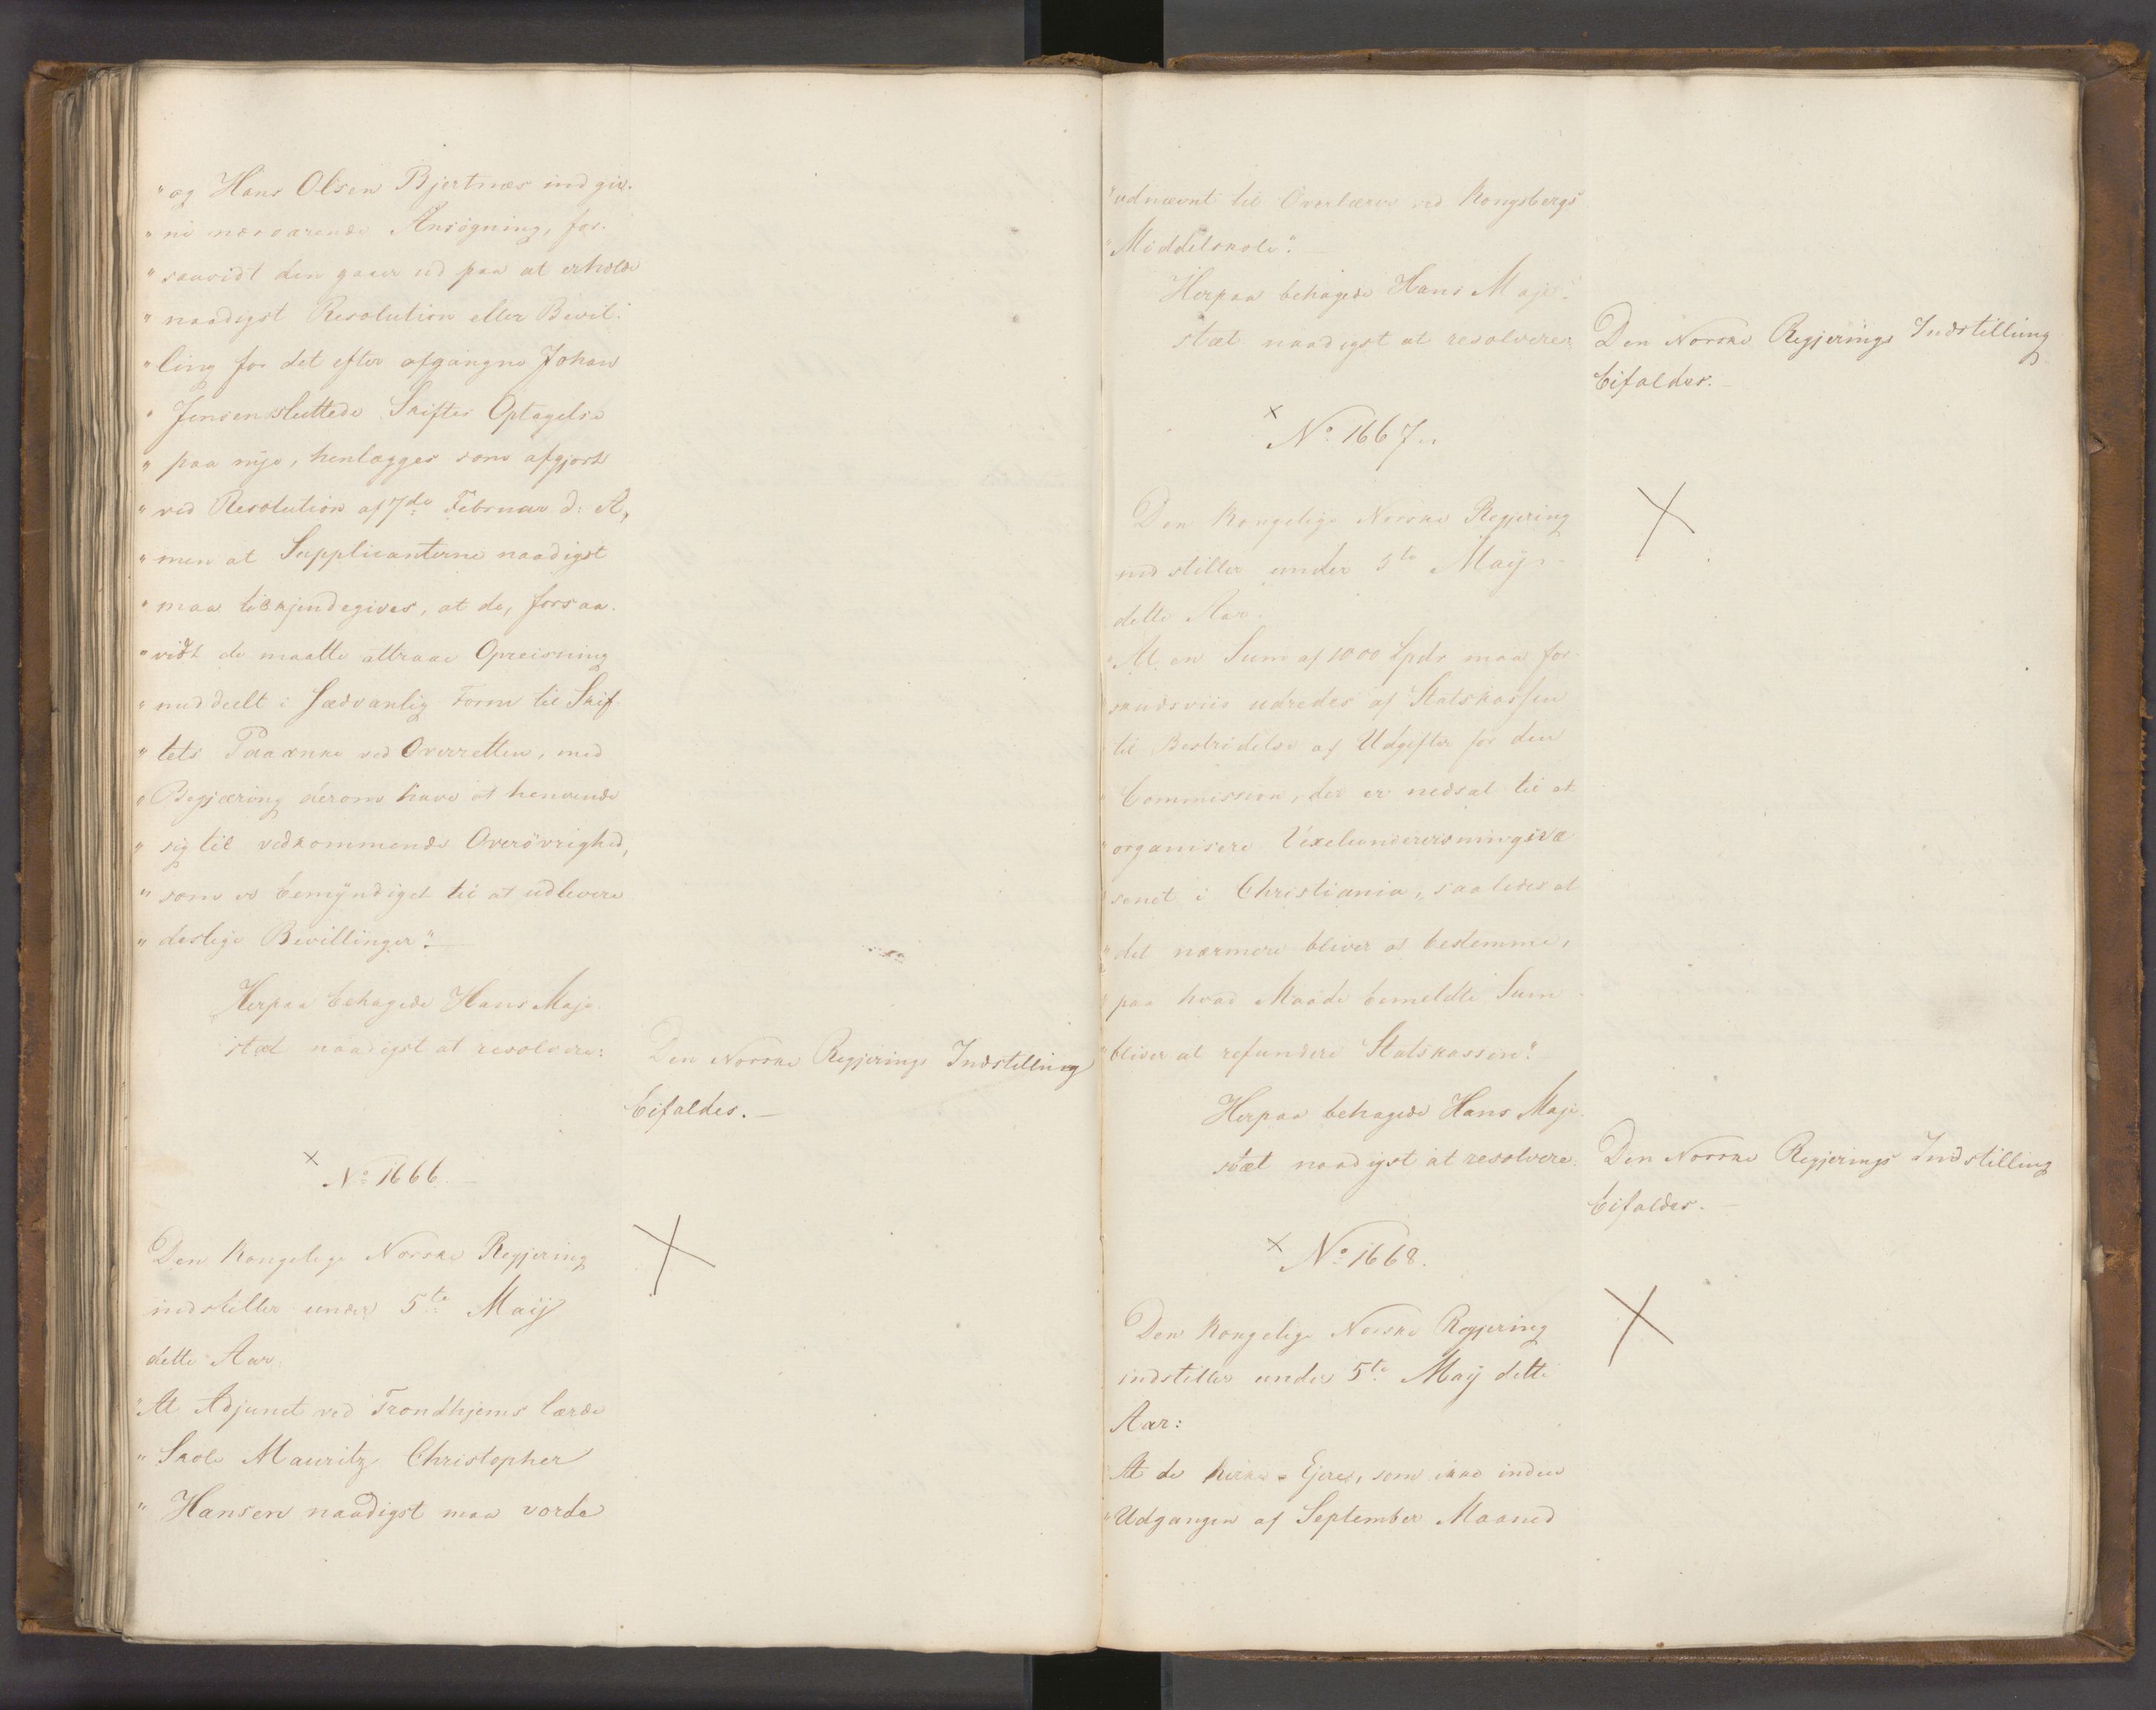 "og Hans Olsen Bjertnæs indgiv-
"ne nærværende Ansøgning, for-
"saavidt den gaaer ud paa at erholde
"naadigst Resolution eller Bevil-
"ling for det efter afgangne Johan
"Jensen sluttede Skiftes Optagelse
"paa nye, henlægges som afgjort
"ved Resolution af 7de Februar d: A,
"men at Supplicanterne naadigst
"maa tilkjendegives, at de, forsaa-
"vidt de maatte attraae Opreisning
"meddeelt i sædvanlig Form til Skif-
"tets Paaanke ved Overretten, med
"Begjæring derom have at henvende
"sig til vedkommende Overøvrighed,
"som er bemyndiget til at udlevere
"deslige Bevillinger".
Herpaa behagede Hans Maje-
stæt naadigst at resolvere:
Den Norske Regjerings Indstilling
bifaldes.
x
No 1666.
Den Kongelige Norske Regjering
indstiller under 5te Maij
dette Aar
"At Adjunct ved Trondhjems lærde
"Skole Mauritz Christopher
"Hansen naadigst maa vorde
"udnævnt til Overlærer ved Kongsbergs
"Middelskole".
Herpaa behagede Hans Maje-
stæt naadigst at resolvere:
Den Norske Regjerings Indstilling
bifaldes.
x
No 1667.
Den Kongelige Norske Regjering
indstiller under 5te Maij
dette Aar.
"At en Sum af 1000 Spdr maa for-
"skudsviis udredes af Statskassen
"til Bestridelse af Udgifter for den
"Commission, der er nedsat til at
"organisere Vexelundervisningsvæ-
"senet i Christiania, saaledes at
"det nærmere bliver at bestemme,
"paa hvad Maade bemeldte Sum
"bliver at refundere Statskassen".
Herpaa behagede Hans Maje-
stæt naadigst at resolvere.
Den Norske Regjerings Indstilling
bifaldes.
x
No 1668.
Den Kongelige Norske Regjering
indstiller under 5te Maij dette
Aar:
"At de Kirke-Ejere, som ikke inden
"Udgangen af September Maaned